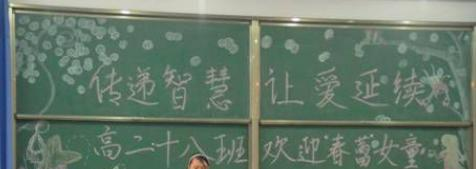 传递智慧 让爱延续
高二十八班 欢迎春蕾女童